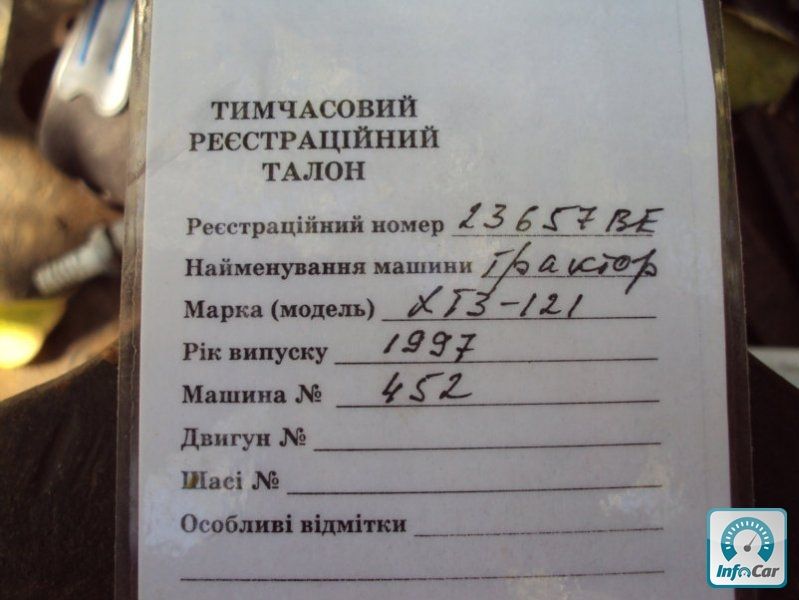 ТИМЧАСОВИЙ
РЕЄСТРАЦІЙНИЙ
ТАЛОН
Реєстраційний номер 23657 ВЕ
Найменування машини трактор
Марка (модель) ХТЗ-121
Рік випуску 1997
Машина № 452
Двигун №
Шасі №
Особливі відмітки
InfoCar